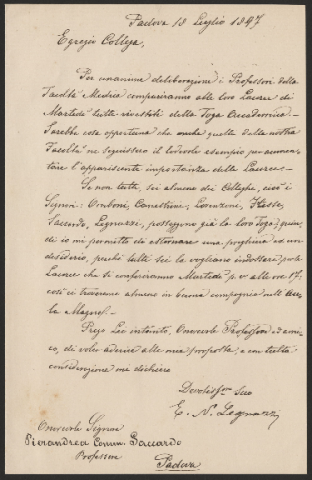 Padova 18 Luglio 1897
Egregio Collega,
Per unanime deliberazione i Professori della
Facoltà Medica compariranno alle loro Lauree di
Martedì tutti rivestiti della Toga Accademica.
Sarebbe cosa opportuna che anche quelli della nostra
Facoltà ne seguissero il lodevole esempio per aumen-
tare l'appariscente importanza della Laurea.
Se non tutti, sei almeno dei Colleghi, cioè i
Signori: Omboni, Canestrini, Lorenzoni, Keller,
Saccardo, Legnazzi, posseggono già la loro Toga; quin-
di io mi permetto di esternare una preghiera ed un
desiderio, perchè tutti sei la vogliano indossare per le
Lauree che si conferiranno Martedì p.v. alle ore 17;
così ci troveremo almeno in buona compagnia nell'Au-
la Magna.
Prego Lei intanto, Onorevole Professore ed ami-
co, di voler aderire alla mia proposta, e con tutta
considerazione mi dichiaro
Devotissmo Suo
E. N. Legnazzi
Onorevole Signore
Pierandrea Comm. Saccardo
Professore
Padova